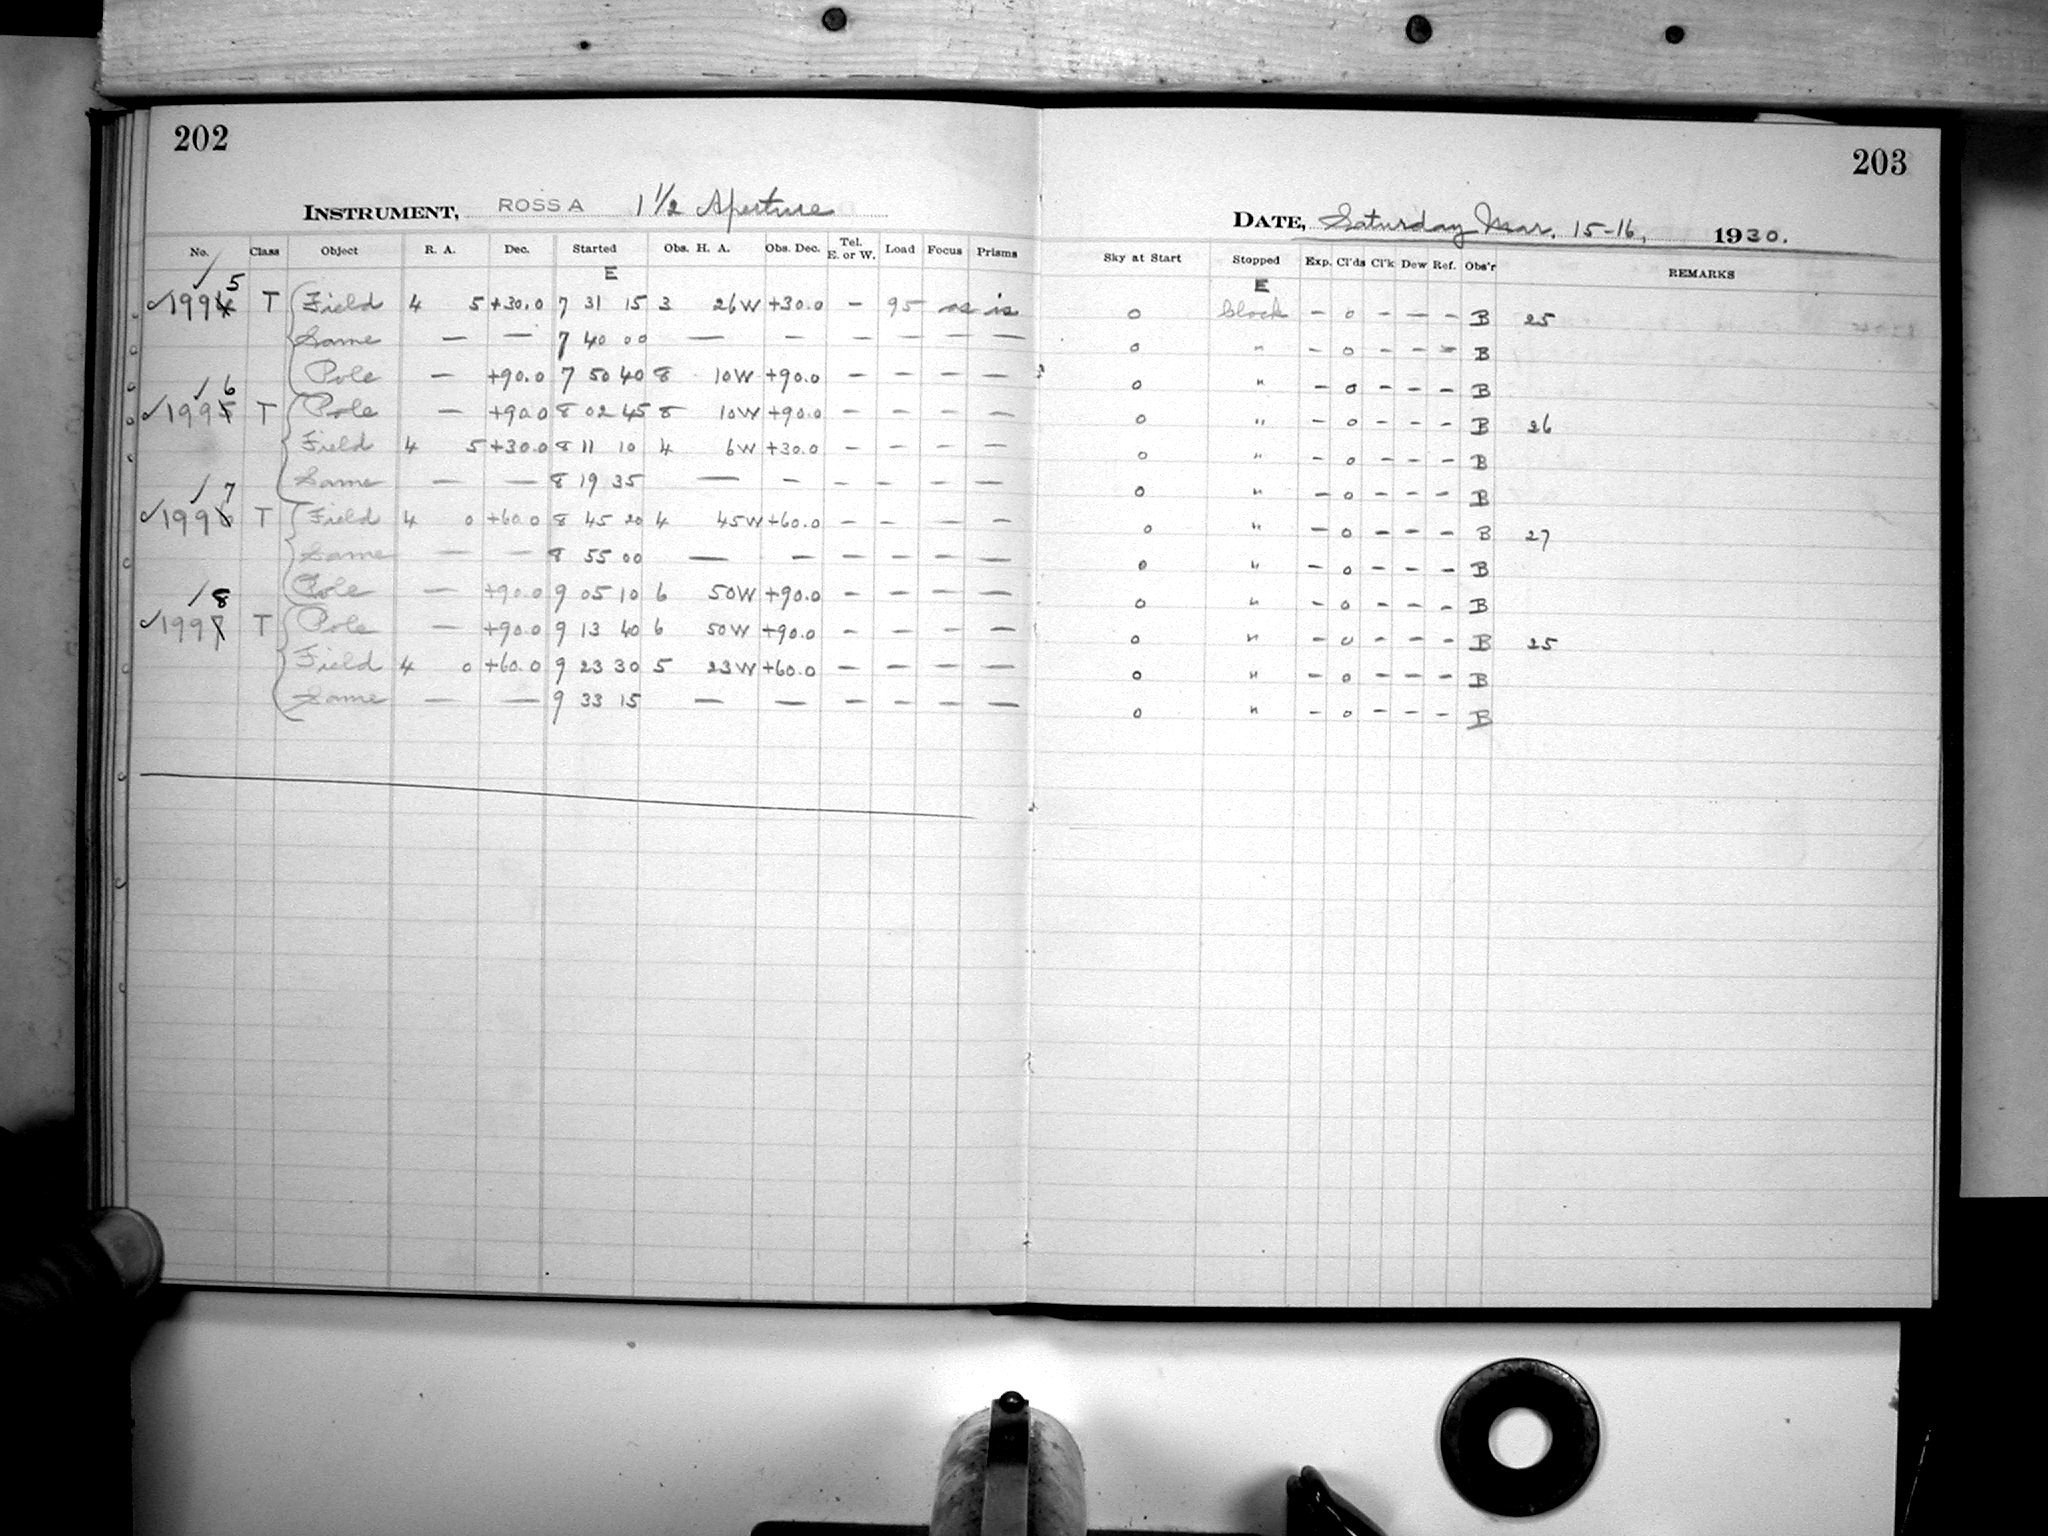 202
INSTRUMENT, ROSS A 1 1/2 Aperture
No. Class Object R. A. Dec. Started Obs. H. A. Obs. Dec. Tel. E. or W. Load Focus Prisms
E
5
1994 T Field 4 5 +30.0 7 31 15 3 26W +30.0 — 95 as is
Same — — 7 40 00 — — — — — —
Pole — +90.0 7 50 40 8 10W +90.0 — — — —
6
1995 T Pole — +90.0 8 02 45 8 10W +90.0 — — — —
Field 4 5 +30.0 8 11 10 4 6W +30.0 — — — —
Same — — 8 19 35 — — — — — —
7
1996 T Field 4 0 +60.0 8 45 20 4 45W +60.0 — — — —
Same — — 8 55 00 — — — — — —
Pole — +90.0 9 05 10 6 50W +90.0 — — — —
8
1997 T Pole — +90.0 9 13 40 6 50W +90.0 — — — —
Field 4 0 +60.0 9 23 30 5 23W +60.0 — — — —
Same — — 9 33 15 — — — — — —
203
DATE, Saturday Mar. 15-16, 1930.
Sky at Start Stopped Exp. Cl'ds Cl'k Dew Ref. Obs'r REMARKS
E
0 Clock — 0 — — — B 25
0 " — 0 — — — B
0 " — 0 — — — B
0 " — 0 — — — B 26
0 " — 0 — — — B
0 " — 0 — — — B
0 " — 0 — — — B 27
0 " — 0 — — — B
0 " — 0 — — — B
0 " — 0 — — — B 25
0 " — 0 — — — B
0 " — 0 — — — B